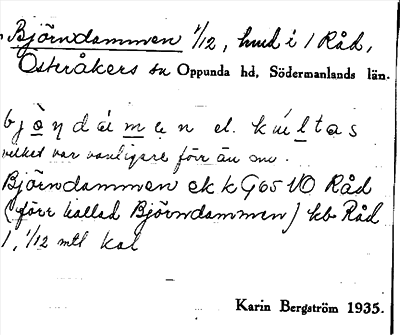 Björndammen 1/12, hmd i 1 Råd,
Österåkers sn Oppunda hd, Södermanlands län.
bjö̱ṇdámen el. kúltas
vilket var vanligare förr än nu.
Björndammen ek k G65 VO Råd
(förr kallad Björndammen) hb Råd
1, 1/12 mtl
Karin Bergström 1935.